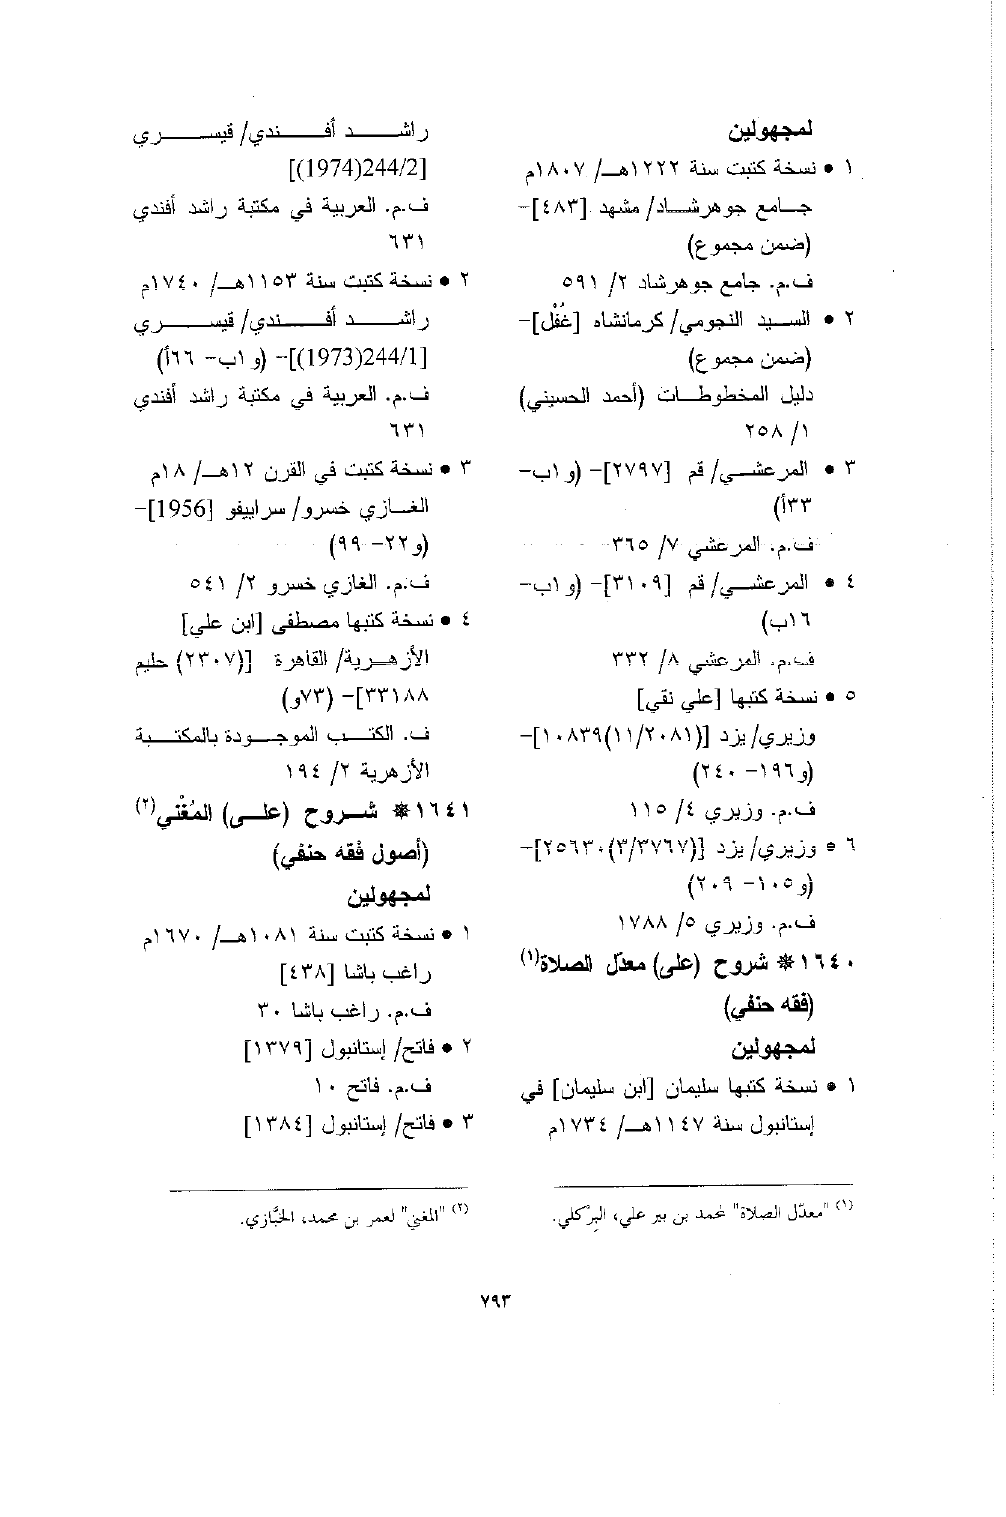 لمجهولين
١ • نسخة كتبت سنة ١٢٢٢هـ/ ١٨٠٧م
جامع جوهرشاد/ مشهد [٤٨٣]-
(ضمن مجموع)
ف.م. جامع جوهرشاد ٢/ ٥٩١
٢ • السيد النجومي/ كرمانشاه [غُفْل]-
(ضمن مجموع)
دليل المخطوطات (أحمد الحسيني)
١/ ٢٥٨
٣ • المرعشي/ قم [٢٧٩٧]- (و ١ب-
٣٣أ)
ف.م. المرعشي ٧/ ٣٦٥
٤ • المرعشي/ قم [٣١٠٩]- (و ١ب-
١٦ب)
ف.م. المرعشي ٨/ ٣٣٢
٥ • نسخة كتبها [علي نقي]
وزيري/ يزد [(١١/٢٠٨١)١٠٨٣٩]-
(و١٩٦- ٢٤٠)
ف.م. وزيري ٤/ ١١٥
٦ • وزيري/ يزد [(٣/٣٧٦٧)٢٥٦٣٠]-
(و١٠٥- ٢٠٩)
ف.م. وزيري ٥/ ١٧٨٨
١٦٤٠* شروح (على) معدّل الصلاة(١)
(فقه حنفي)
لمجهولين
١ • نسخة كتبها سليمان [ابن سليمان] في
إستانبول سنة ١١٤٧هـ/ ١٧٣٤م
راشد أفندي/ قيسري
[244/2(1974)]
ف.م. العربية في مكتبة راشد أفندي
٦٣١
٢ • نسخة كتبت سنة ١١٥٣هـ/ ١٧٤٠م
راشد أفندي/ قيسري
[244/1(1973)]- (و ١ب- ٦٦أ)
ف.م. العربية في مكتبة راشد أفندي
٦٣١
٣ • نسخة كتبت في القرن ١٢هـ/ ١٨م
الغازي خسرو/ سراييفو [1956]-
(و٢٢- ٩٩)
ف.م. الغازي خسرو ٢/ ٥٤١
٤ • نسخة كتبها مصطفى [ابن علي]
الأزهرية/ القاهرة [(٢٣٠٧) حليم
٣٣١٨٨]- (٧٣و)
ف. الكتب الموجودة بالمكتبة
الأزهرية ٢/ ١٩٤
١٦٤١* شروح (على) المُغْني(٢)
(أصول فقه حنفي)
لمجهولين
١ • نسخة كتبت سنة ١٠٨١هـ/ ١٦٧٠م
راغب باشا [٤٣٨]
ف.م. راغب باشا ٣٠
٢ • فاتح/ إستانبول [١٣٧٩]
ف.م. فاتح ١٠
٣ • فاتح/ إستانبول [١٣٨٤]
(١) "معدّل الصلاة" لمحمد بن بير علي، البِرْكلي.
(٢) "المغني" لعمر بن محمد، الخبَّازي.
٧٩٣